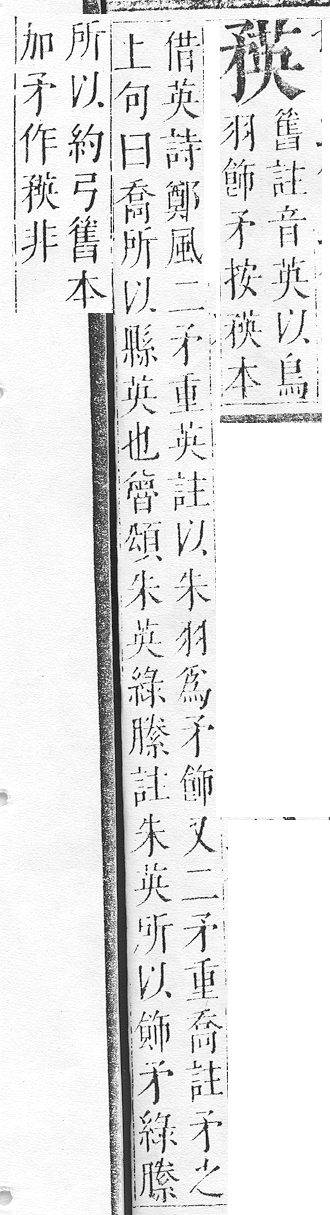 舊註音英以鳥
羽飾矛按本
借英詩鄭風二矛重英註以朱羽爲矛飾又二矛重喬註矛之
上句曰喬所以縣英也魯頌朱英綠縢註朱英所以飾矛綠縢
所以約弓舊本
加矛作非